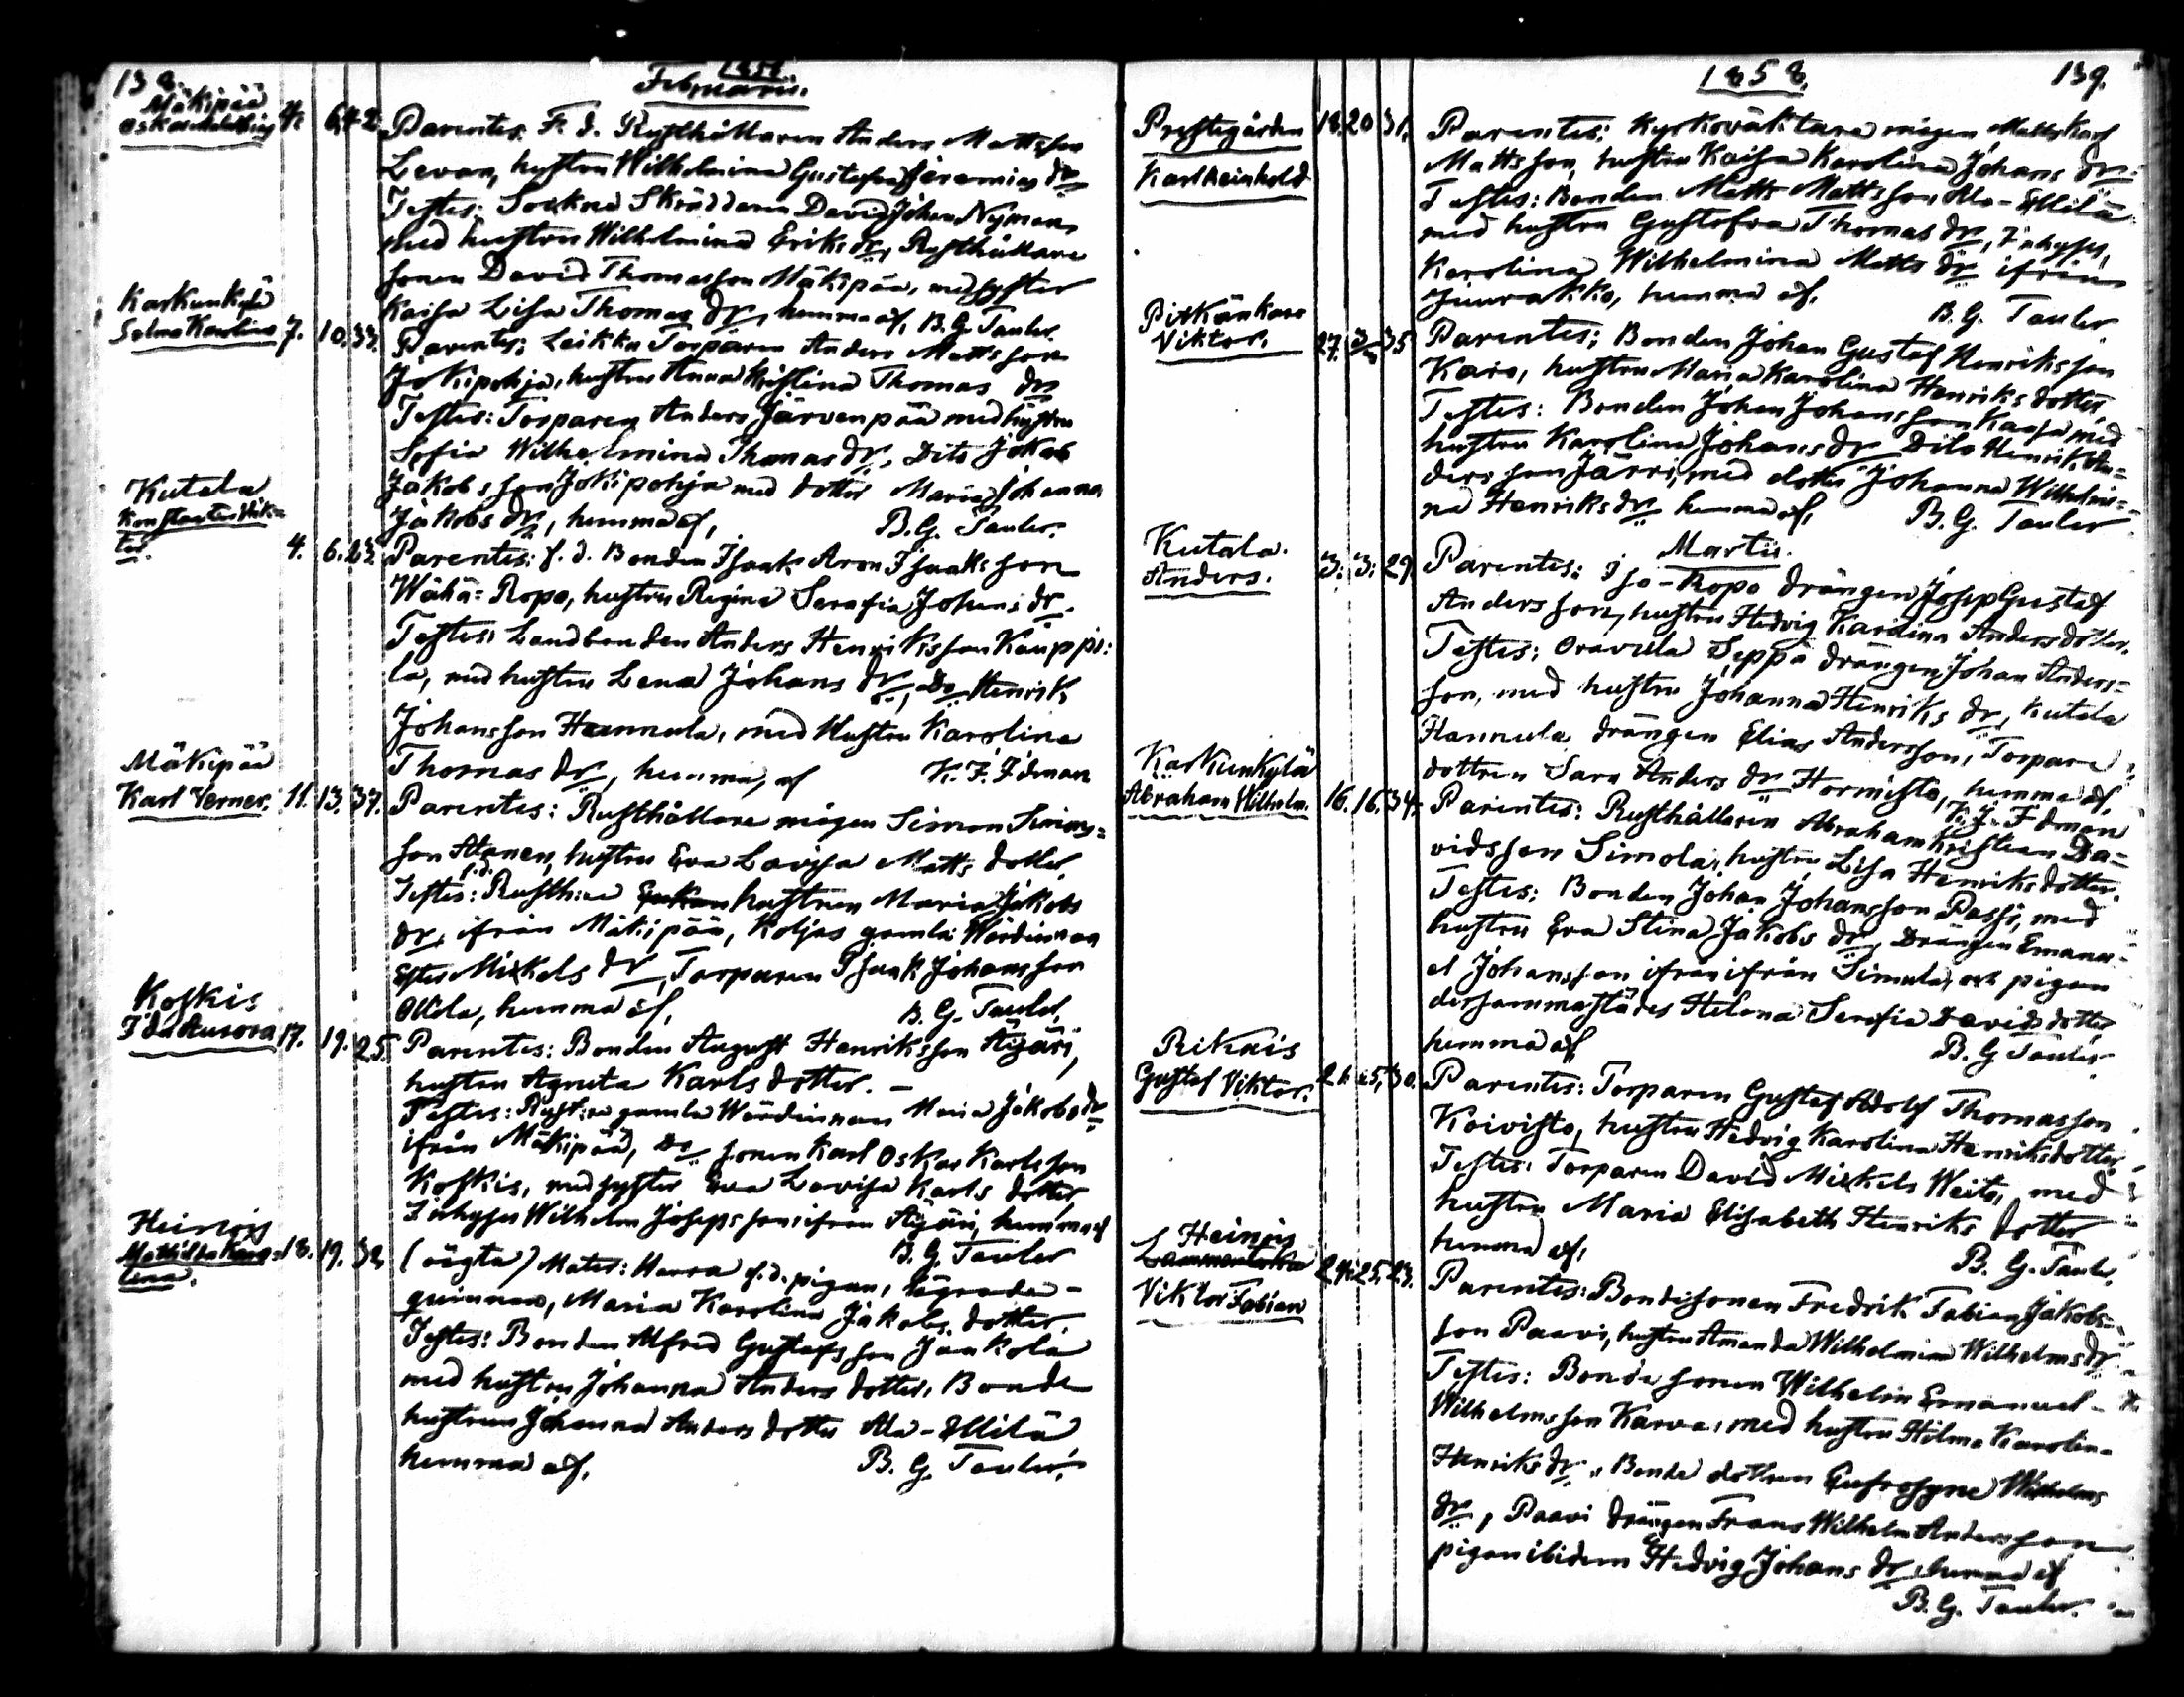 138.
1858.
Februarii.
Mäkipää
Oskar
4. 6. 42.
Parentes: F. d. Rusthållaren Anders Mattsson
Levan, hustru Wilhelmina Gustafva Jeremias dr
Testes: Sockne Skräddaren David Johan Nyman,
med hustru Wilhelmina Eriks dr, Rusthållare
sonen David Thomasson Mäkipää, med syster
Kaisa Lisa Thomas dr, hemma af, B. G. Tauler.
Karkunkylä
Selma Karolina 7. 10. 33.
Parentes: Leikku Torparen Anders Mattsson
Jokipohja, hustru Anna Kristina Thomas dr
Testes: Torparen Anders Järvenpää med hustru
Sofia Wilhelmina Thomas dr, Dito Jakob
Jakobsson Jokipohja med dotter Maria Johanna
Jakobs dr, hemma af, B. G. Tauler.
Kutala
Konstantin Vik-
tor.
4. 6. 23.
Parentes: f. d. Bonden Isaak Aron Isaaksson
Wähä-Ropo, hustru Regina Serafia Johans dr.
Testes: Landbonden Anders Henriksson Kauppi-
la, med hustru Lena Johans dr, Do Henrik
Johansson Hannula, med Hustru Karolina
Thomas dr, hemma af K. F. Idman
Mäkipää
Karl Verner. 11. 13. 37.
Parentes: Rusthållare mågen Simon Simons-
son Atanen, hustru Eva Lovisa Matts dotter,
Testes: f.d. Rusth:re Enkan hustrun Maria Jakobs
dr, ifrån Mäkipää, Koljas gamla Wärdinnan
Ester Mickels dr, Torparen Isaak Johansson
Ollila, hemma af, B. G. Tauler.
Koskis
Ida Aurora 17. 19. 25.
Parentes: Bonden August Henriksson Äijäri,
hustru Agneta Karls dotter. –
Testes: Rusth:re gamla Wärdinnan Maria Jakobs dr
ifrån Mäkipää, Do sonen Karl Oskar Karlsson
Koskis, med syster Eva Lovisa Karls dotter,
Inhyses Wilhelm Josepsson ifrån Äijäri, hemma af
B. G. Tauler
Heinois
Mathilda Karo-
lina.
18. 19. 32
(oägta) Mater: Harra f. d. pigan, lägrade-
quinnan, Maria Karolina Jakobs dotter.
Testes: Bonden Alfred Gustafsson Jaakola
med hustru Johanna Anders dotter, Bonde
hustrun Johanna Anders dotter Ala-Ellilä
hemma af, B. G. Tauler.
1858.
139.
Prestegården
Karl Reinhold
18. 20. 31.
Parentes: Kyrkoväktare mågen Matts Karl
Mattsson, hustru Kaisa Karolina Johans dr.
Testes: Bonden Matts Mattsson Ala-Ellilä
med hustru Gustafva Thomas dr, Inhyses,
Karolina Wilhelmina Matts dr ifrån
hemma af.
B. G. Tauler
Pitkänkoro
Viktor.
27. 3/3 35
Parentes: Bonden Johan Gustaf Henriksson
Karo, hustru Maria Karolina Henriks dotter,
Testes: Bonden Johan Johansson Kaaja med
hustru Karolina Johans dr Dito Henrik An-
dersson Järri, med dotter Johanna Wilhelmi-
na Henriks dr hemma af, B. G. Tauler
Martii.
Kutala.
Anders.
3. 3. 29.
Parentes: Iso-Ropo drängen Josep Gustaf
Andersson, hustru Hedvig Karolina Anders dotter.
Testes: Oravula Seppä drängen Johan Anders-
son, med hustru Johanna Henriks dr, Kutala
Hannula drängen Elias Andersson, Torpare
dottren Sara Anders dr Hormisto, hemma af.
K. F. Idman
Karkunkylä
Abraham Wilhelm. 16. 16. 34.
Parentes: Rusthållaren Abraham Kristian Da-
vidsson Simola, hustru Lisa Henriks dotter.
Testes: Bonden Johan Johansson Passi, med
hustru Eva Stina Jakobs dr, Drängen Emanu-
el Johansson ifrån ifrån Simula, och pigan
dersammastädes Helena Serafia Davids dotter,
hemma af, B. G. Tauler.
Riknis
Gustaf Viktor. 21. 25. 30.
Parentes: Torparen Gustaf Adolf Thomasson
Koivisto, hustru Hedvig Karolina Henriksdotter,
Testes: Torparen David Mickels Weito, med
hustru Maria Elisabeth Henriks dotter
hemma af,
B. G. Tauler.
Heinois
Viktor Fabian
24. 25. 23.
Parentes: Bondesonen Fredrik Fabian Jakobs-
son Paavi, hustru Amanda Wilhelmina Wilhelms dr.
Testes: Bonde sonen Wilhelm Emanuel
Wilhelmsson Karva, med hustru Hilma Karolina
Henriks dr, Bonde dottren Eufrosyne Wilhelms
dr, Paavi drängen Frans Wilhelm Andersson
pigan ibidem Hedvig Johans dr, hemma af
B. G. Tauler.